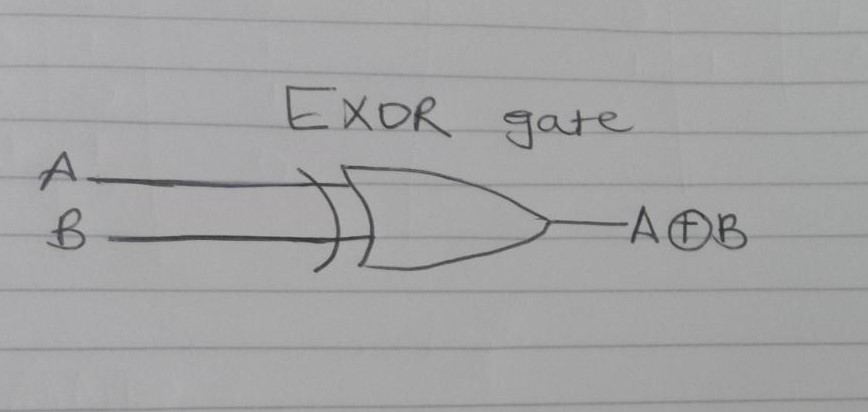 EXOR gate
A
B
A⊕B